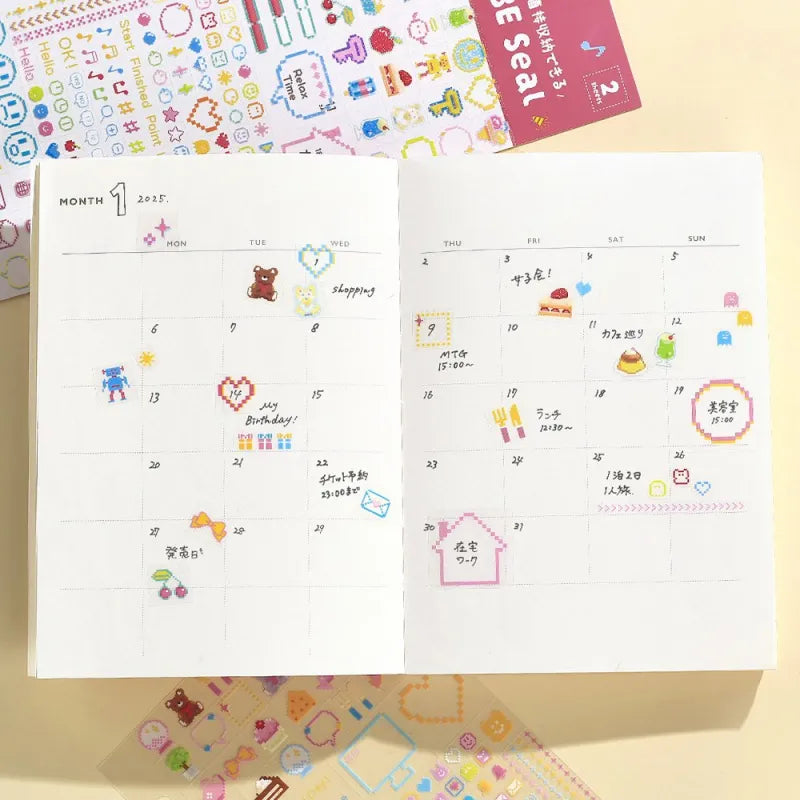 OK!
Hello
Hello
Start
Finished
Point
Relax
Time
収納できる
BE Seal
2
Sheets
MONTH 1 2025.
MON TUE WED
THU FRI SAT SUN
1
shopping
2 3 4 5
女子会!
6 7 8
9 10 11 12
MTG
15:00~
カフェ巡り
13 14 15
My
Birthday!
16 17 18 19
ランチ
12:30~
美容室
15:00
20 21 22
チケット予約
23:00まで
23 24 25 26
1泊2日
1人旅.
27 28 29
発売日!
30 31
在宅
ワーク